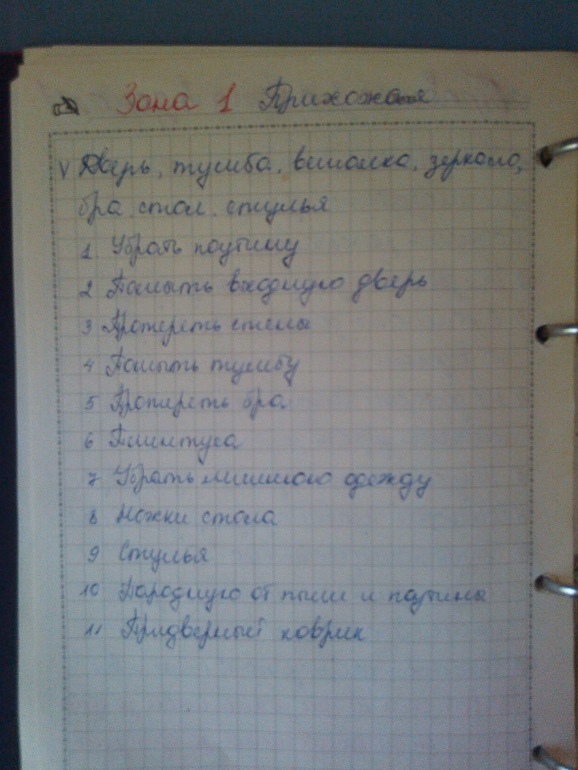 Зона 1 Прихожая
V Дверь, тумба, вешалка, зеркало,
бра, стол, стулья
1 Убрать паутину
2 Помыть входную дверь
3 Протереть стены
4 Помыть тумбу
5 Протереть бра
6 Плинтуса
7 Убрать лишнюю одежду
8 Ножки стола
9 Стулья
10 Парадную от пыли и паутины
11 Придверный коврик